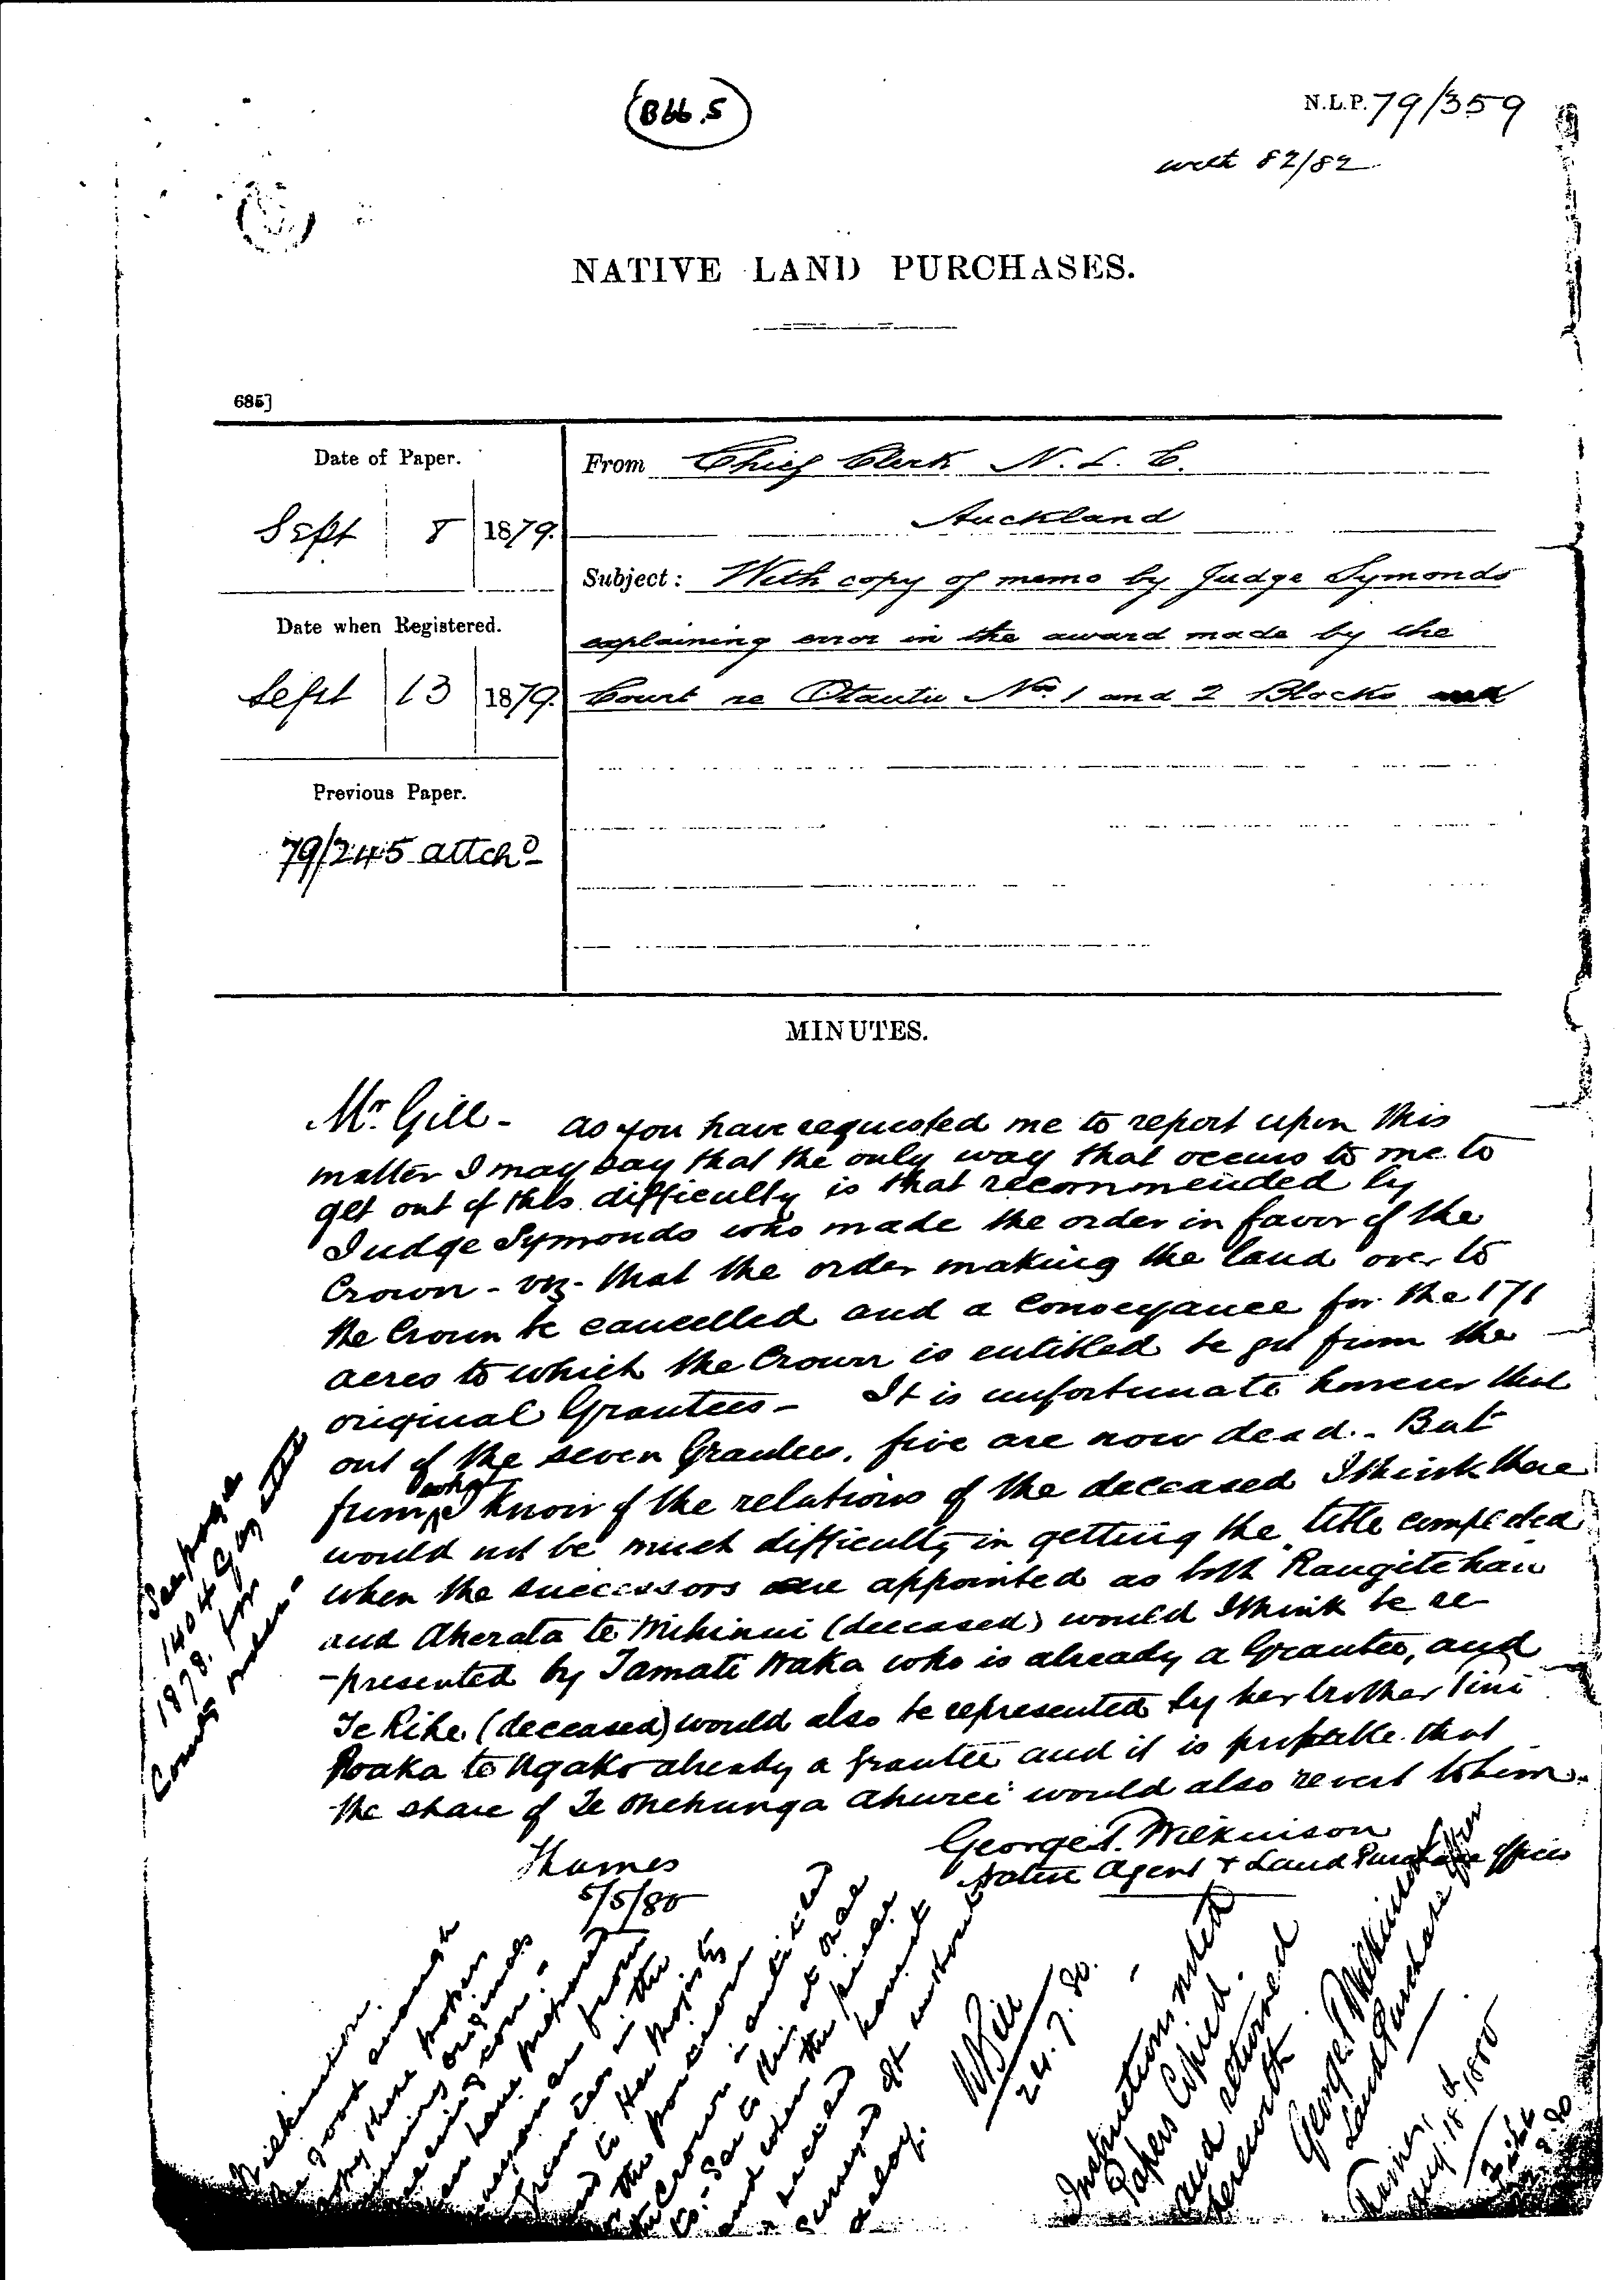 B66.5
N.L.P. 79/359
with 82/82
NATIVE LAND PURCHASES.
685]
Date of Paper.
Sept 8 1879.
Date when Registered.
Sept 13 1879.
Previous Paper.
79/245 attchd
From Chief Clerk N. L. C.
Auckland
Subject: With copy of memo by Judge Symonds
explaining error in the award made by the
Court re Otautu Nos. 1 and 2 Blocks
MINUTES.
Mr. Gill - As you have requested me to report upon this
matter I may say that the only way that occurs to me to
get out of this difficulty is that recommended by
Judge Symonds who made the order in favor of the
Crown - viz - that the order making the land over to
the Crown be cancelled and a conveyance for the 171
acres to which the Crown is entitled be got from the
original Grantees - It is unfortunate however that
out of the seven Grantees, five are now dead. - But
from what I know of the relations of the deceased I think there
would not be much difficulty in getting the title completed
when the successors are appointed as both Rangitehau
and Aherata te Mihinui (deceased) would I think be re-
-presented by Tamati Waka who is already a Grantee, and
Te Rihe (deceased) would also be represented by her brother Pini
Roaka te Ngako already a Grantee and it is probable that
the share of Te Onehunga Ahurei would also revert to him.
George T. Wilkinson
Native Agent & Land Purchase Officer
Thames
5/5/80
See page
1404 Gazette
1878. for
Courts order.
Wilkinson.
be good enough
copy these papers
returning originals
conveyance from
grantees in the
to Her Majesty
the portion
the Crown is entitled
to. - See to this at once
and when the piece
surveyed without
delay.
W Gill
24.7.80.
Instructions noted
Papers Copied.
and returned
herewith
George T. Wilkinson
Land Purchase Officer
Thames
Aug. 18. 1880